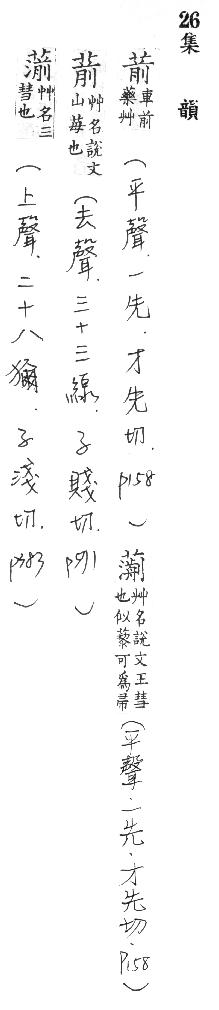 26集 韻
葥 車前
藥艸 (平聲.一先.才先切.p158)
艸名說文王彗
也似藜可為帚 (平聲.一先.才先切.p158)
葥 艸名說文
山莓也 (去聲.三十三線.子賤切.p571)
艸名三
彗也 (上聲.二十八獮.子淺切.p383)